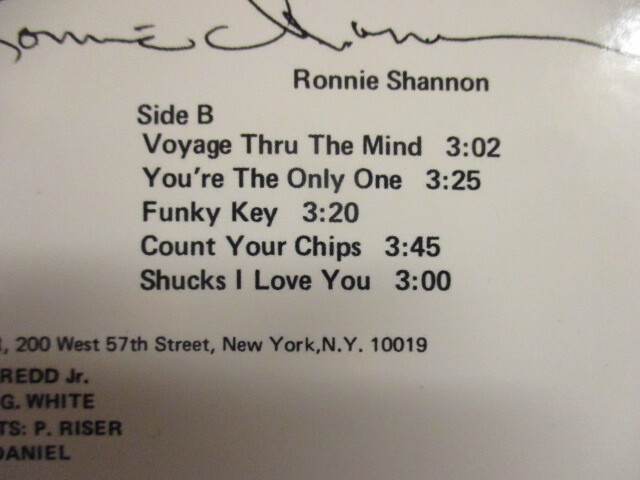 Ronnie Shannon
Ronnie Shannon
Side B
Voyage Thru The Mind 3:02
You're The Only One 3:25
Funky Key 3:20
Count Your Chips 3:45
Shucks I Love You 3:00
, 200 West 57th Street, New York,N.Y. 10019
REDD Jr.
G. WHITE
TS: P. RISER
DANIEL